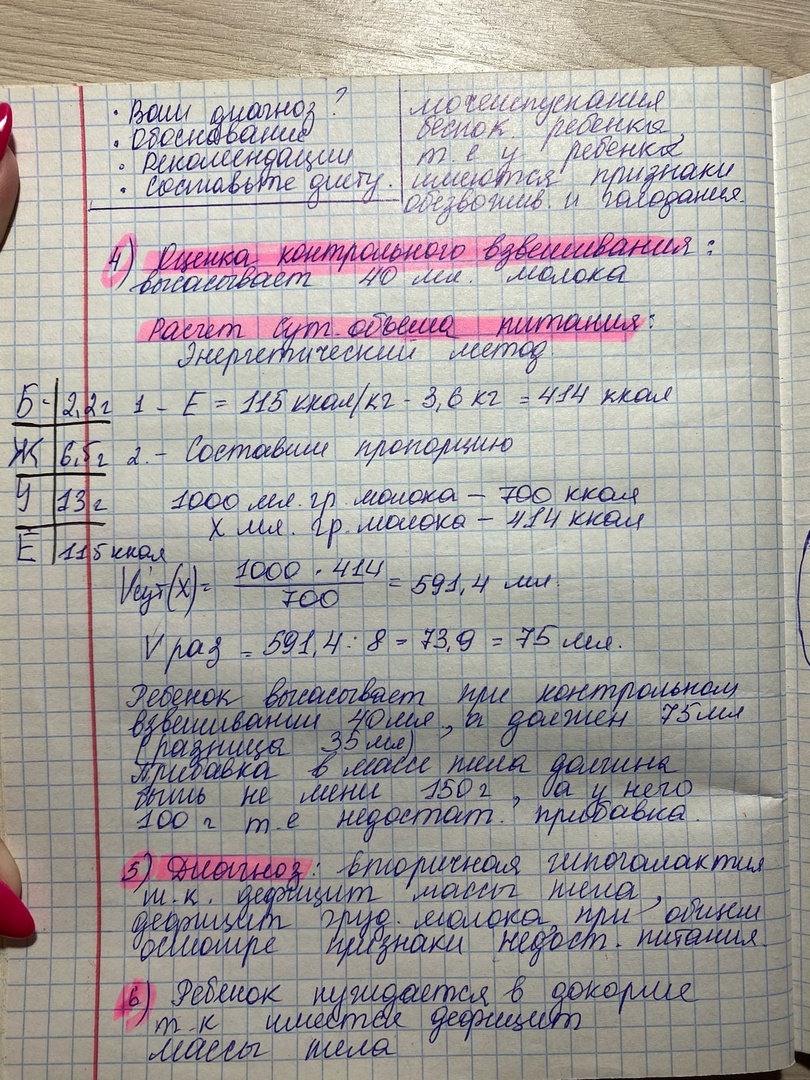 • Ваш диагноз?
• Обоснование
• Рекомендации
• Составьте диету.
мочеиспускания
беспок ребенка,
т.е у ребенка
имеются признаки
обезвожив. и голодания.
4) Оценка контрольного взвешивания:
высасывает 40 мл. молока
Расчет сут. объема питания:
Энергетический метод
Б - 2,2г
Ж 6,5г
У 13г
Е 115 ккал
1 - Е = 115 ккал/кг - 3,6 кг = 414 ккал
2. - Составим пропорцию
1000 мл. гр. молока - 700 ккал
х мл. гр. молока - 414 ккал
Vсут(х) = 1000 · 414 / 700 = 591,4 мл.
V раз = 591,4 : 8 = 73,9 = 75 мл.
Ребенок высасывает при контрольном
взвешивании 40мл, а должен 75мл
(разница 35 мл)
Прибавка в массе тела должна
быть не мени 150г, а у него
100 г т.е недостат. прибавка.
5) Диагноз: вторичная гипогалактия
т.к. дефицит массы тела,
дефицит груд. молока, при общем
осмотре признаки недост. питания.
6) Ребенок нуждается в докорме
т.к имеется дефицит
массы тела